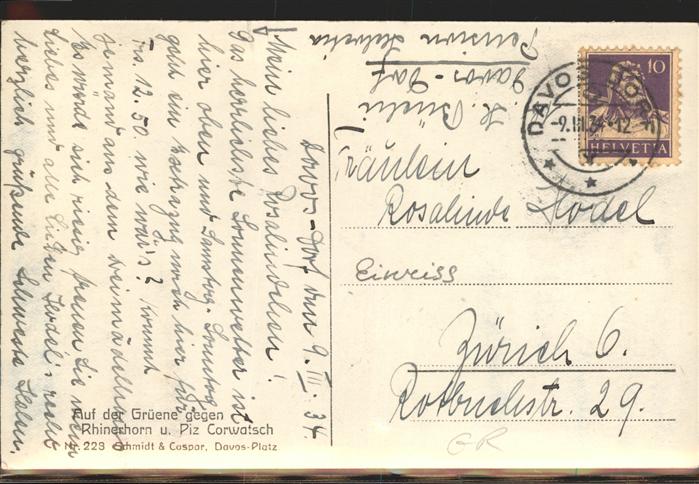 Davos-Dorf den 9. III. 34.
Mein liebes Rosalindchen!
Das herrlichste Sonnenwetter ist
hier oben und Samstag-Sonntag
geht ein Extrazug nach hier für
Frs. 12.50. wie wär's? kommt
jemand aus dem Dreimädelhaus
Es würde sich riesig freuen Sie meine
Liebes und alle lieben Hodel's recht
herzlich grüssende Schwester
H. Büchi
Davos-Dorf
Pension Helvetia
10
HELVETIA
DAVOS DORF
-9.III.34-12
Fräulein
Rosalinde Hodel
Einreiss
Zürich 6.
Rotbuchstr. 29.
GR
Auf der Grüene gegen
Rhinerhorn u. Piz Corwatsch
Nr. 223 Schmidt & Caspar, Davos-Platz